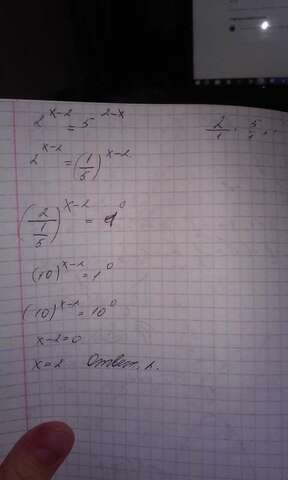 2^{x-2} = 5^{2-x}
2^{x-2} = (1/5)^{x-2}
(2/(1/5))^{x-2} = 1^0
(10)^{x-2} = 1^0
(10)^{x-2} = 10^0
x-2=0
x=2 Ответ. 2.
2/1 · 5/1